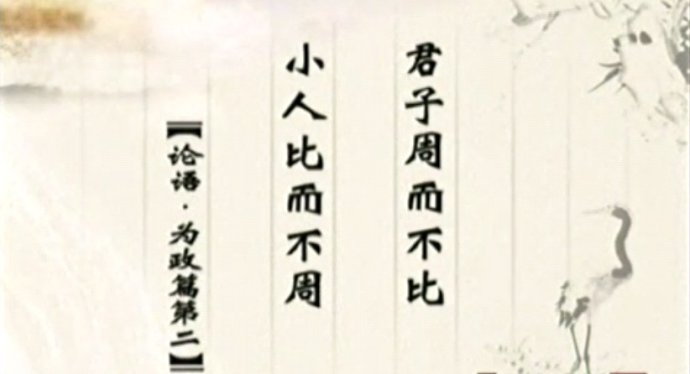 君子周而不比
小人比而不周
【论语·为政篇第二】